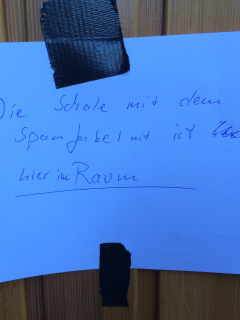 Die Schale mit dem
Spanferkel ist
hier im Raum